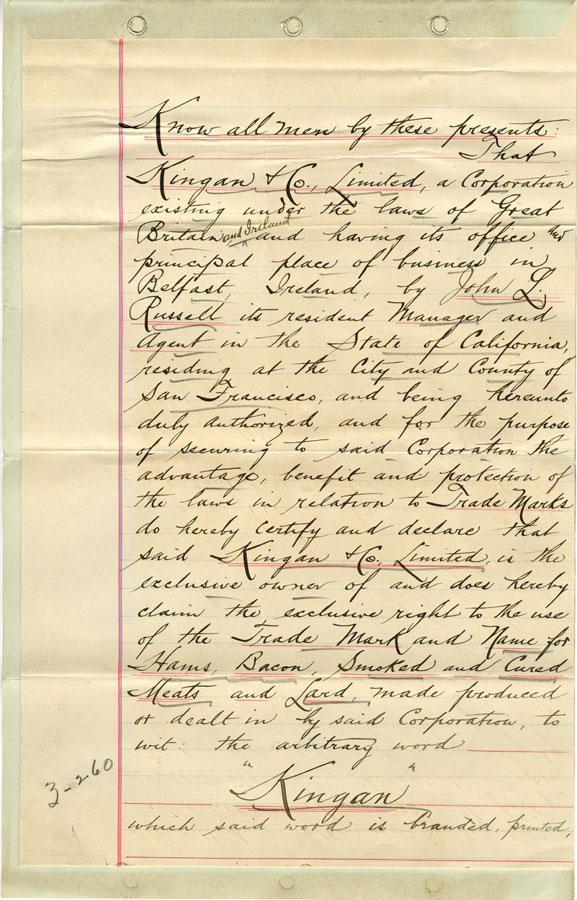 Know all men by these presents:
That
Kingan & Co., Limited, a Corporation
existing under the laws of Great
Britain and Ireland and having its office and
principal place of business in
Belfast, Ireland, by John L.
Russell its resident Manager and
Agent in the State of California,
residing at the City and County of
San Francisco, and being hereunto
duly authorized, and for the purpose
of securing to said Corporation the
advantage, benefit and protection of
the laws in relation to Trade Marks
do hereby certify and declare that
said Kingan & Co. Limited, is the
exclusive owner of and does hereby
claim the exclusive right to the use
of the Trade Mark and Name for
Hams, Bacon, Smoked and Cured
Meats and Lard, made produced
or dealt in by said Corporation, to
wit: the arbitrary word
3-260
"Kingan"
which said word is branded, printed,